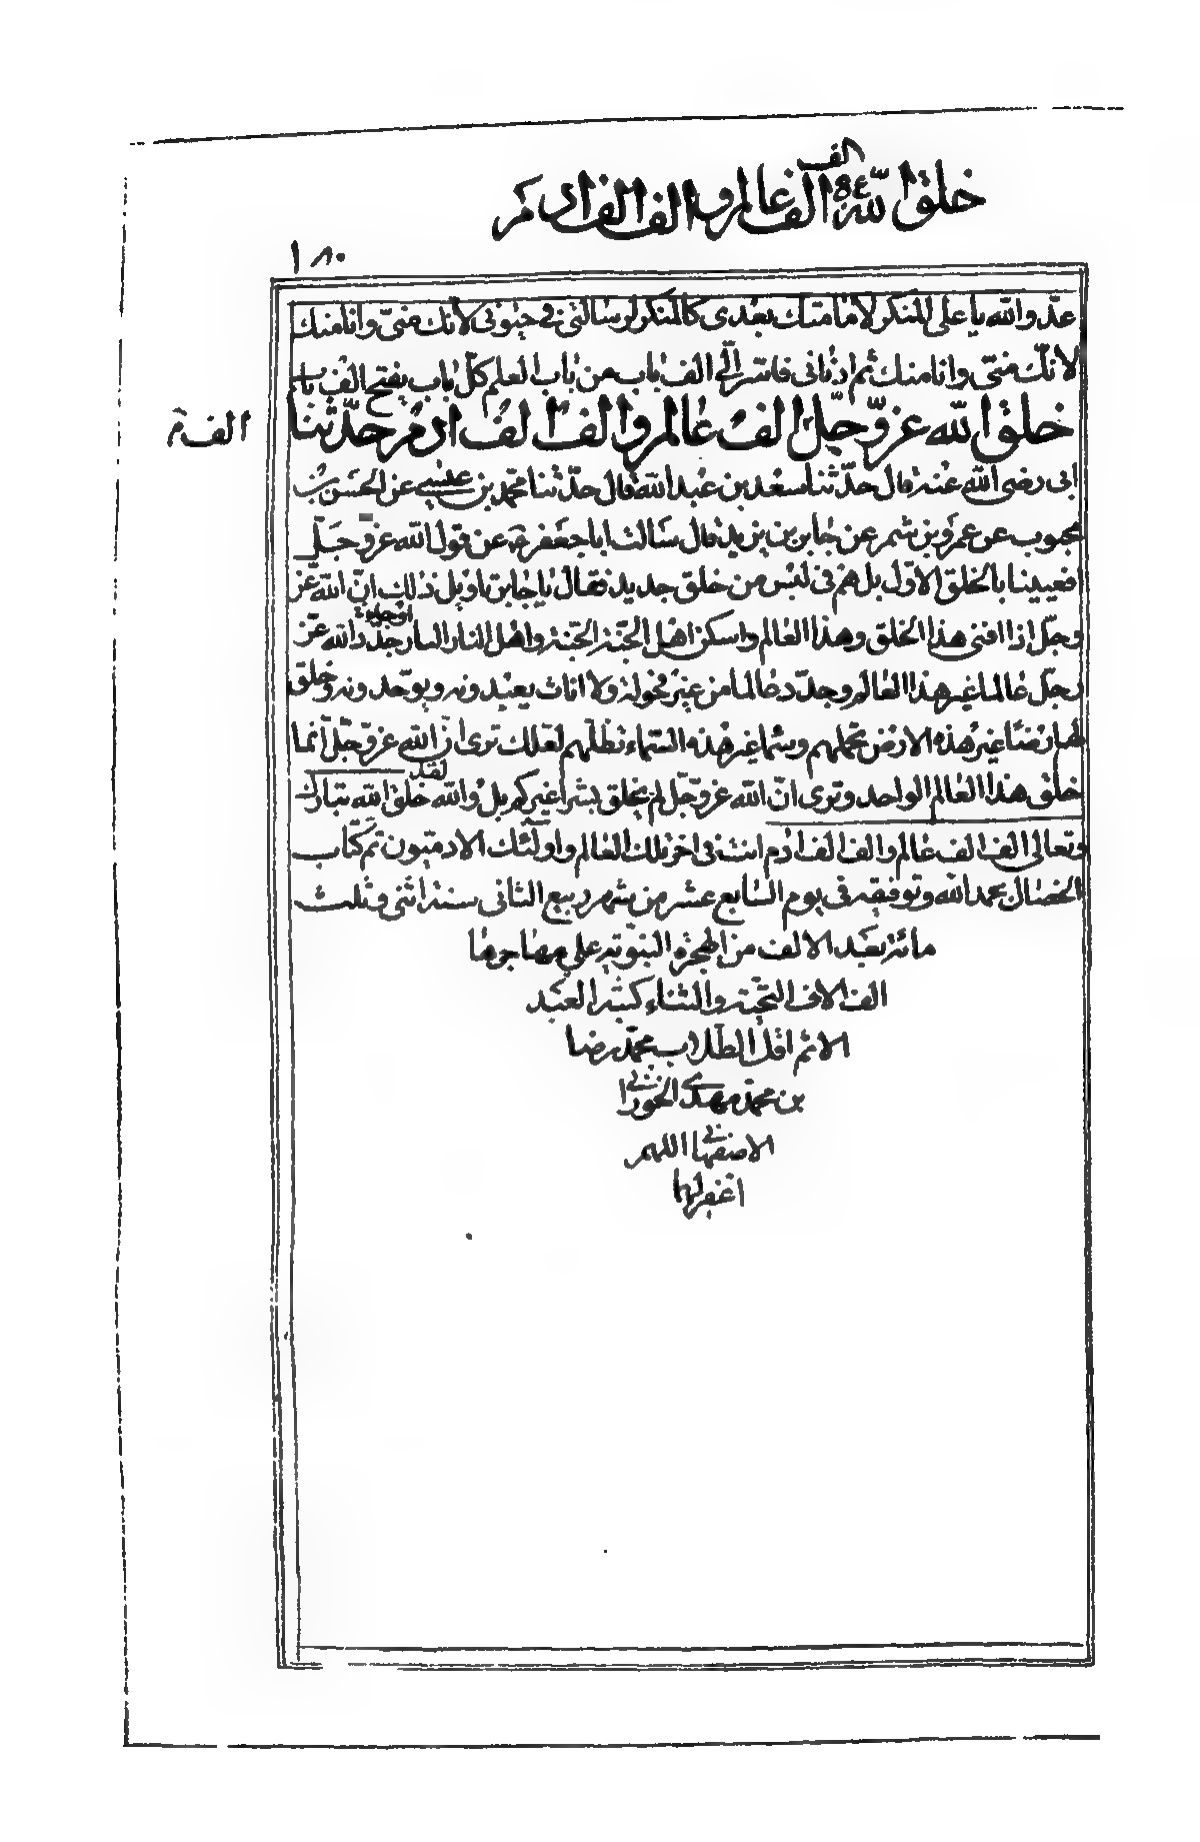 الف
خلق الله الف عالم و الف الف ادم
١٨٠
عدّ والله يا على المنكر لامامتك بعدى كالمنكر لرسالتى فى حيوتى لانك منى وانا منك
لانّك منّى وانا منك ثم ادنانى فاسر الىّ الف باب من باب العلم كلّ باب يفتح الف باب
خلق الله عزّ وجلّ الف عالم والف الف ادم حدّثنا
الف م
ابى رضى الله عنه قال حدّثنا سعد بن عبد الله قال حدّثنا محمد بن عيسى عن الحسن بن
محبوب عن عمرو بن شمر عن جابر بن يزيد قال سالت ابا جعفر عن قول الله عز وجلّ
افعيينا بالخلق الاوّل بل هم فى لبس من خلق جديد فقال يا جابر تاويل ذلك انّ الله عزّ
وجلّ اذا افنى هذا الخلق وهذا العالم واسكن اهل الجنّة الجنّة واهل النار النار جدّد الله عزّ
وجلّ عالما غير هذا العالم وجدّد عالما من غير فحولة ولا اناث يعبدونه ويوحّدونه وخلق
لهم ارضًا غير هذه الارض تحملهم وسماء غير هذه السّماء تظلّهم لعلك ترى انّ الله عزّ وجلّ انما
لقد
خلق هذا العالم الواحد وترى انّ الله عز وجلّ لم يخلق بشرا غيركم بل والله خلق الله تبارك
وتعالى الف الف عالم والف الف ادم انت فى اخر تلك العالم واولئك الادميّون تم كتاب
الخصال بحمد الله وتوفيقه فى يوم السابع عشر من شهر ربيع الثانى سنة اثنى وثلث
مائة بعد الالف من الهجرة النبويّة على مهاجرها
الف الاف التحيّة والثناء كتبه العبد
الاثم اقل الطلاب محمد رضا
بن محمد مهدى الخوزانى
الاصفهانى اللهم
اغفر لهما